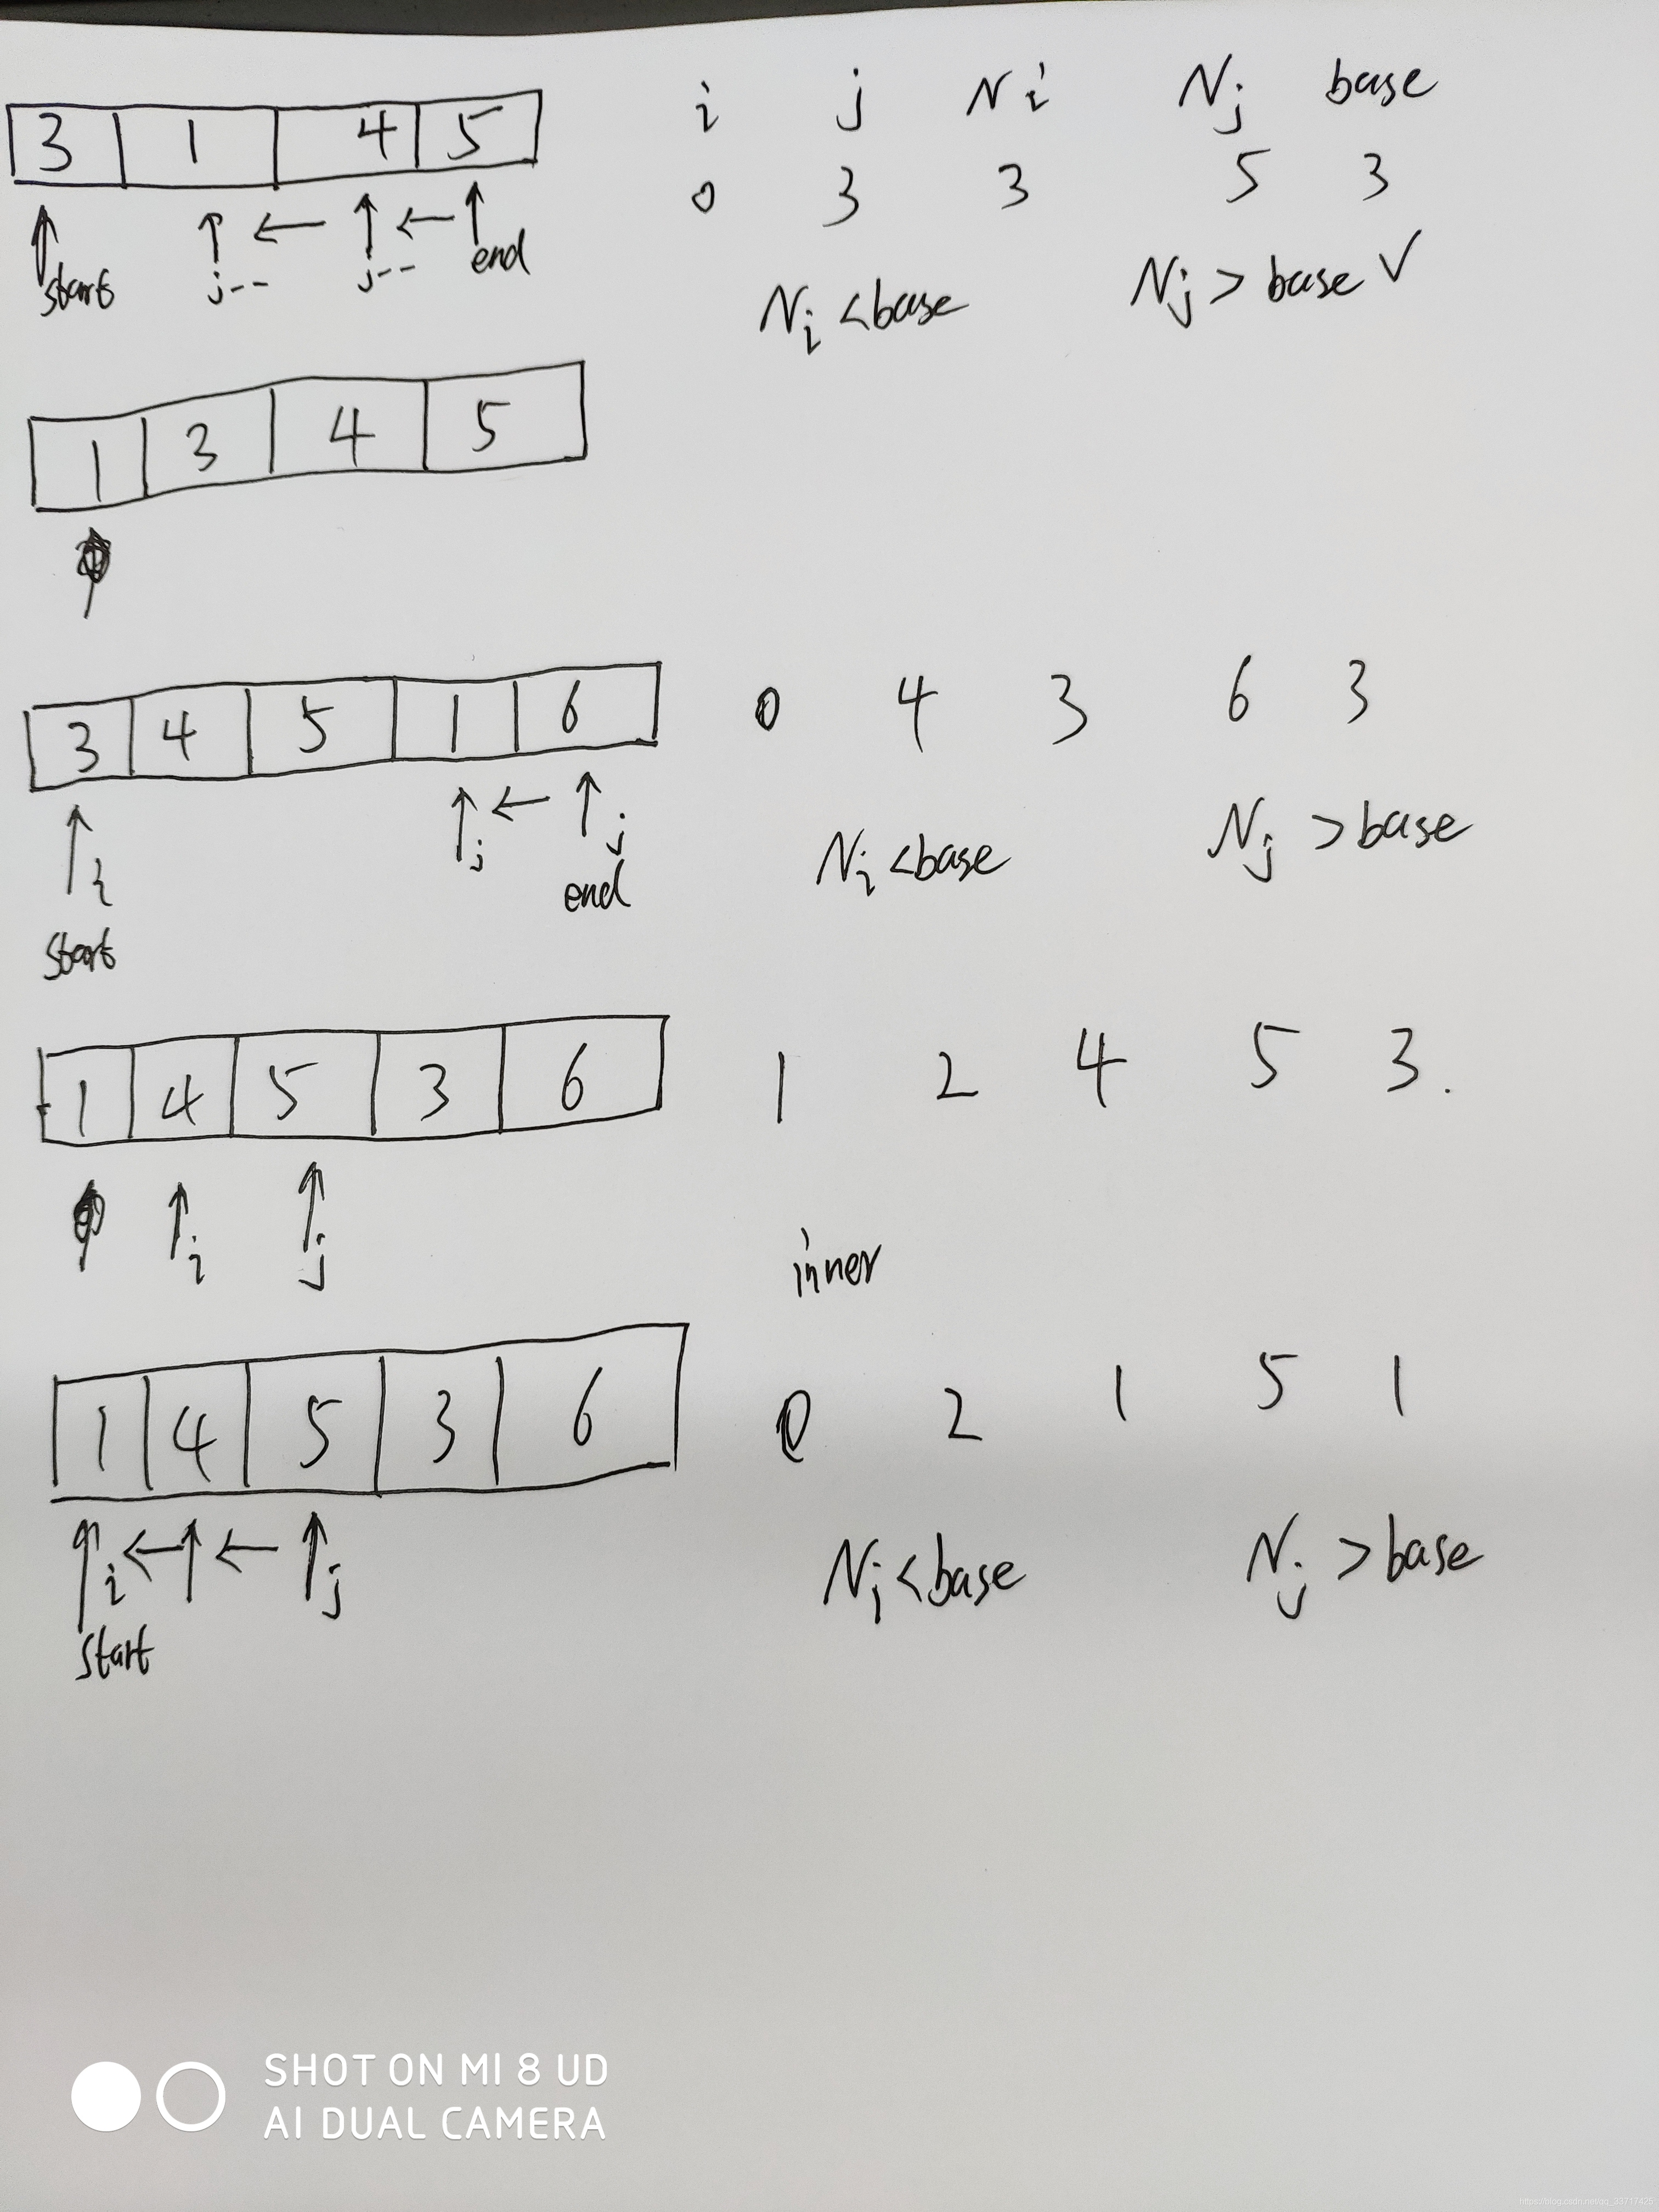 3 1 4 5 i j Ni Nj base
0 3 3 5 3
start j-- j-- end
Ni < base Nj > base √
1 3 4 5
3 4 5 1 6 0 4 3 6 3
i j j
start end
Ni < base Nj > base
1 4 5 3 6 1 2 4 5 3.
i j
inner
1 4 5 3 6 0 2 1 5 1
i j
start
Ni < base Nj > base
SHOT ON MI 8 UD
AI DUAL CAMERA
https://blog.csdn.net/qq_33717425